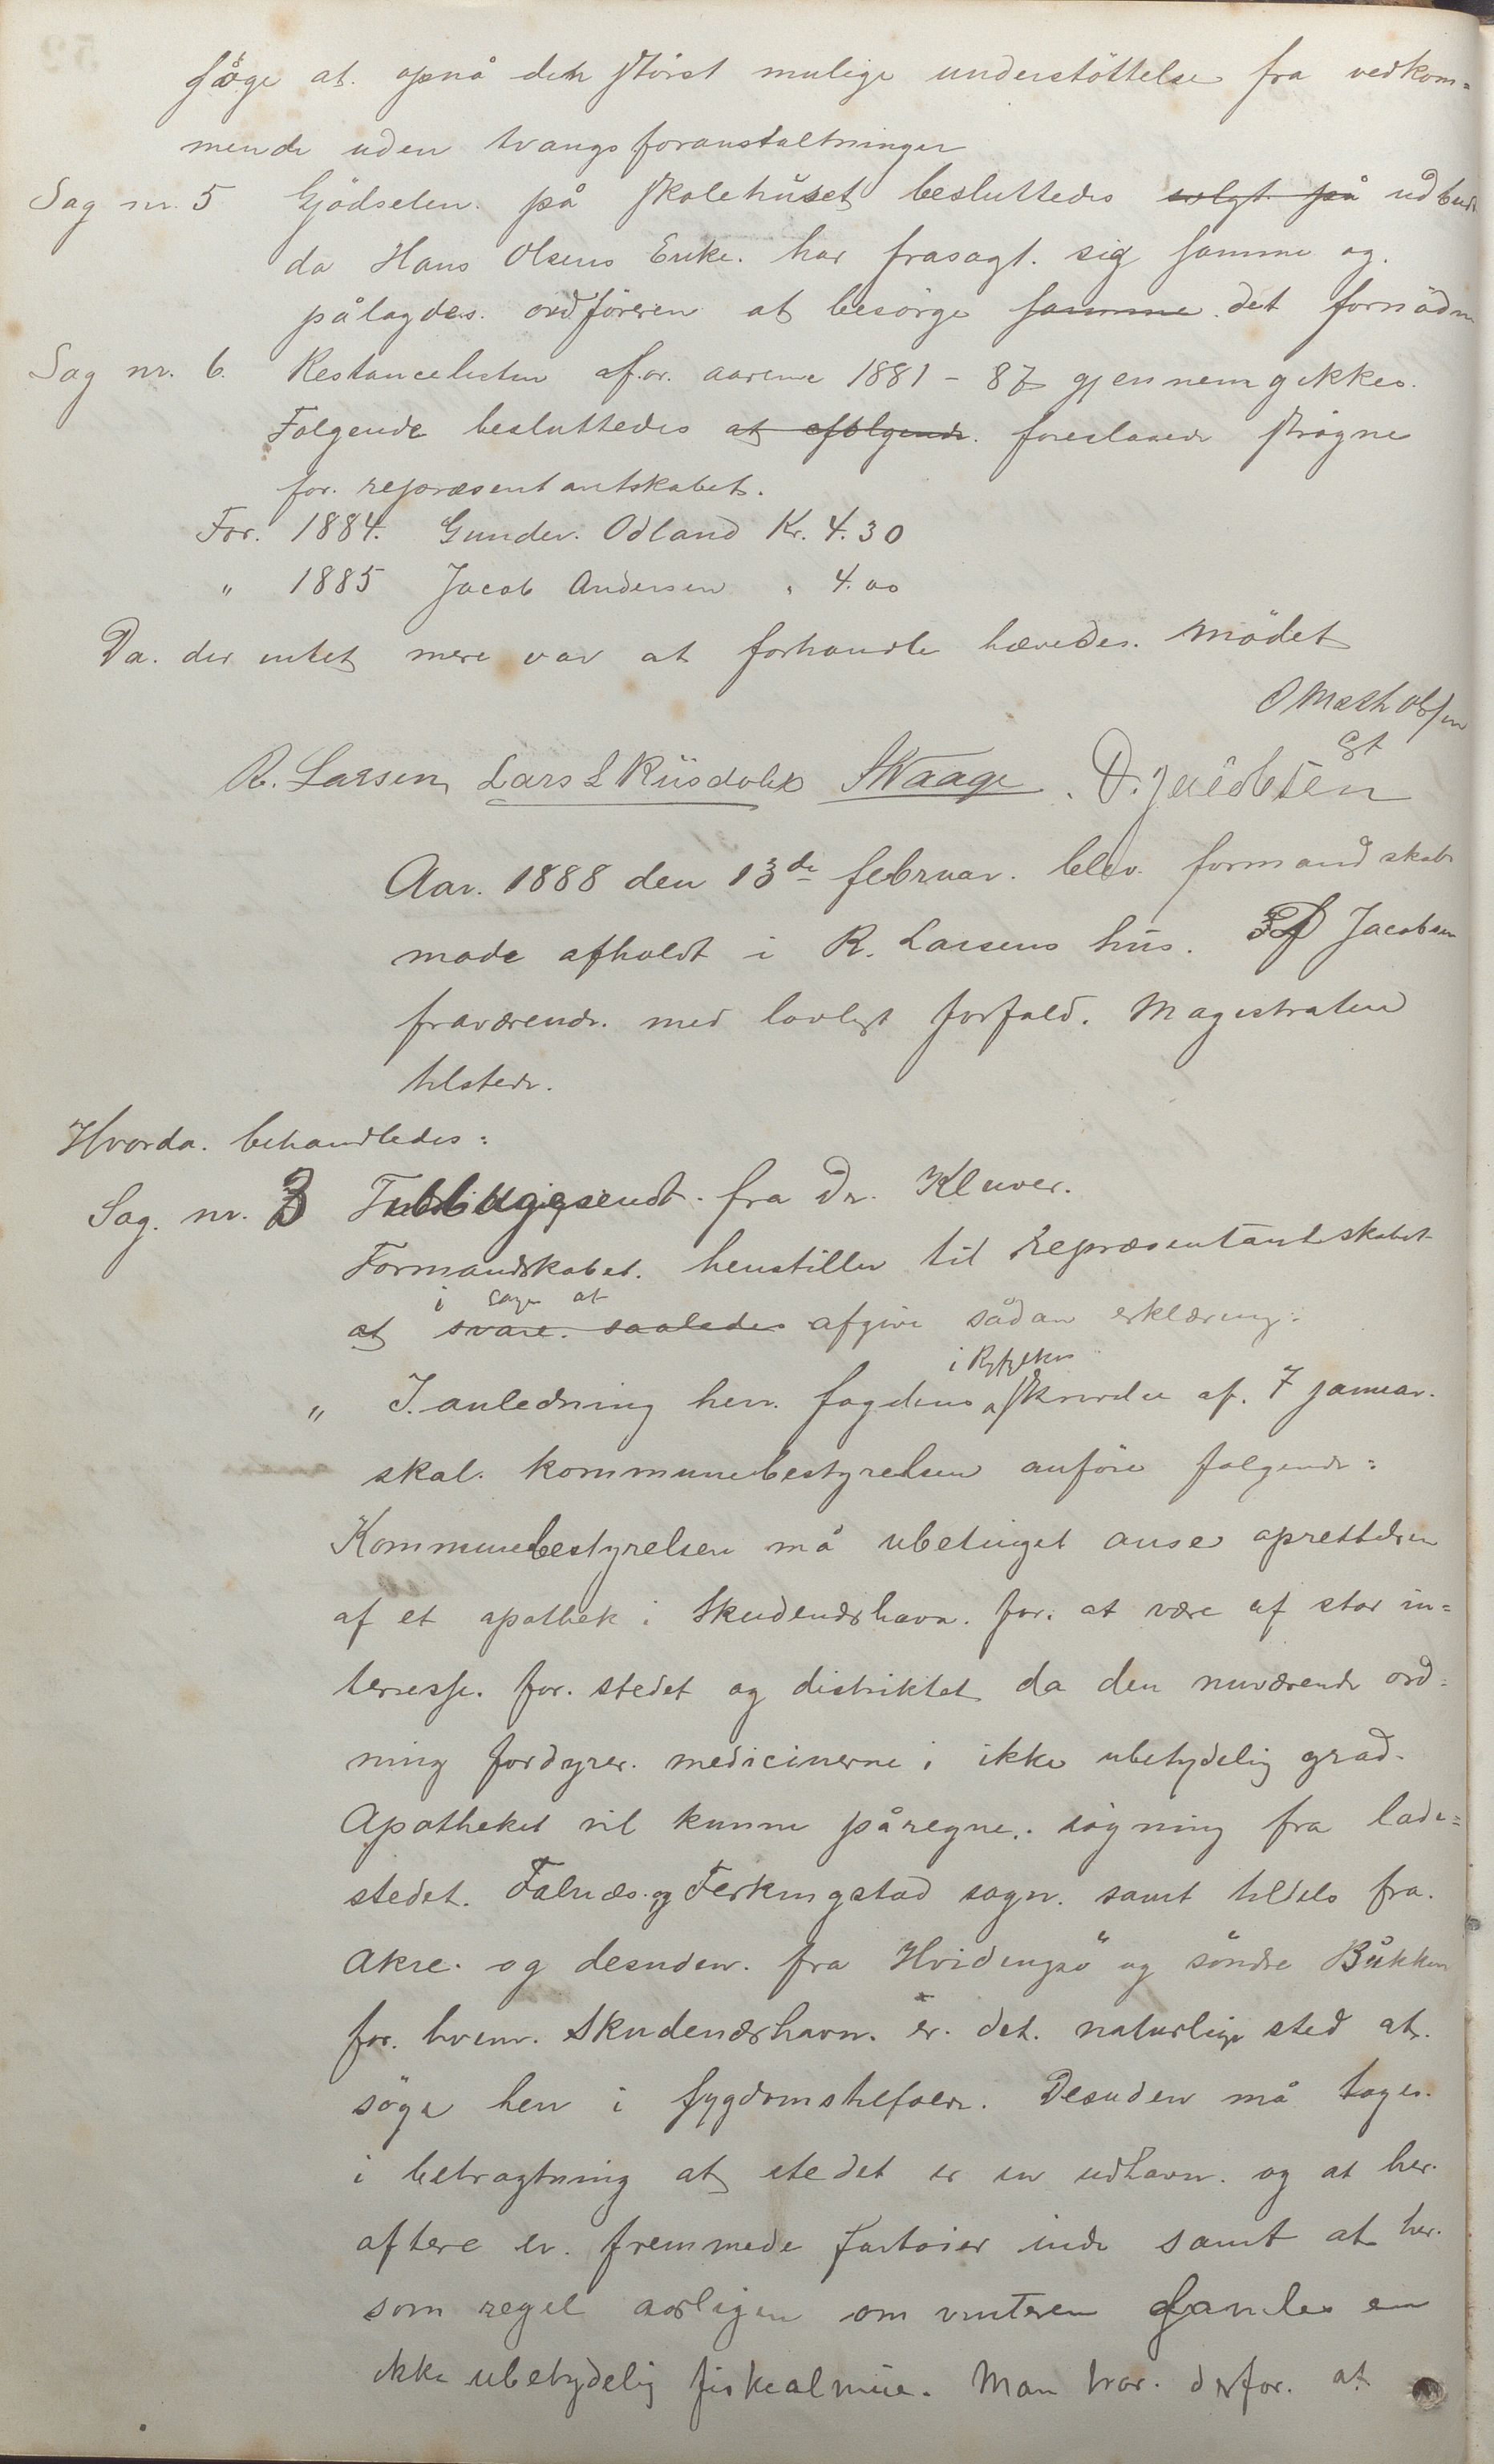 søge at opnå den störst mulige understöttelse fra vedkom=
mende uden tvangsforanstaltninger
Sag nr. 5 Gjödselen på skolehuset besluttedes solgt på udbudt
da Hans Olsens Enke har frasagt sig samme og
pålagdes ordföreren at besörge samme det fornödne
Sag nr. 6. Restancelisten for aarene 1881-87 gjennemgikkes.
Følgende besluttedes at følgende foreslaaede strögne
for repræsentantskabet.
For 1884. Gunder Odland Kr. 4.30
" 1885 Jacob Andersen " 4.00
Da der intet mere var at forhandle hævedes mödet
O Math Olsen
R. Larsen Lars L Riisdahl S Waage D. Jacobsen
Aar 1888 den 13de februar blev formandskabs
møde afholdt i R. Larsens hus. Jacobsen
fraværende med lovligt forfald. Magistraten
tilstede.
Hvorda behandledes:
Sag nr. 3 fra Dr. Kluver.
Formandskabet henstiller til repræsentantskabet
i sagen at
at svare saaledes afgive sådan erklæring:
i Ryfylke
" I anledning herr fogdens skrivelse af 7 januar
skal kommunebestyrelsen anföre følgende:
Kommunebestyrelsen må ubetinget anse oprettelsen
af et apothek i Skudenæshavn for at være af stor in=
terresse for stedet og distriktet da den nuværende ord=
ning fordyrer medicinerne i ikke ubetydelig grad.
Apotheket vil kunne påregne sögning fra lade=
stedet. Falnæs og Ferkingstad sogn samt tildels fra
Akre og desuden fra Hvidingsö og söndre Bukken
for hvem Skudenæshavn er det naturlige sted at
söge hen i sygdomstilfælde. Desuden må tages
i betragtning at stedet er en udhavn og at her
oftere er fremmede fartøier inde samt at her
som regel aarligen om vinteren samles en
ikke ubetydelig fiskealmue. Man tror derfor at